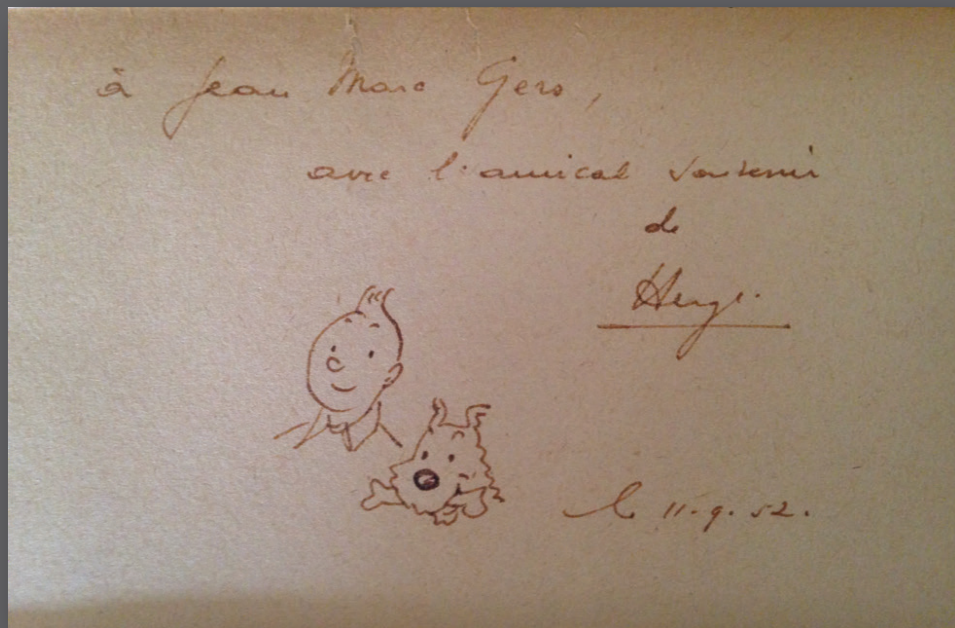 à Jean Marc Gers,
avec l'amical souvenir
de
Hergé.
le 11.9.52.